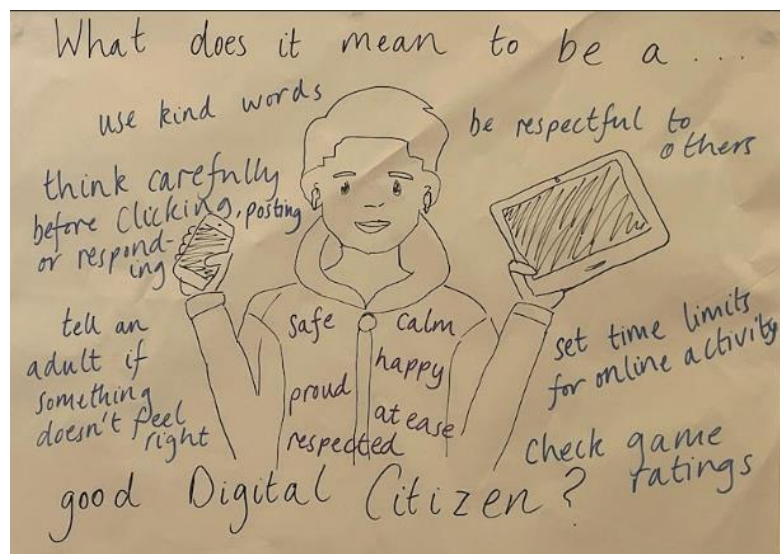 What does it mean to be a ...
use kind words
be respectful to
others
think carefully
before Clicking, posting
or respond-
ing
tell an
adult if
something
doesn't feel
right
safe
calm
happy
proud
at ease
respected
set time limits
for online activity
check game
ratings
good Digital Citizen?